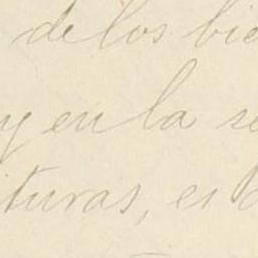 de los bie
y en la se
ituras, es d